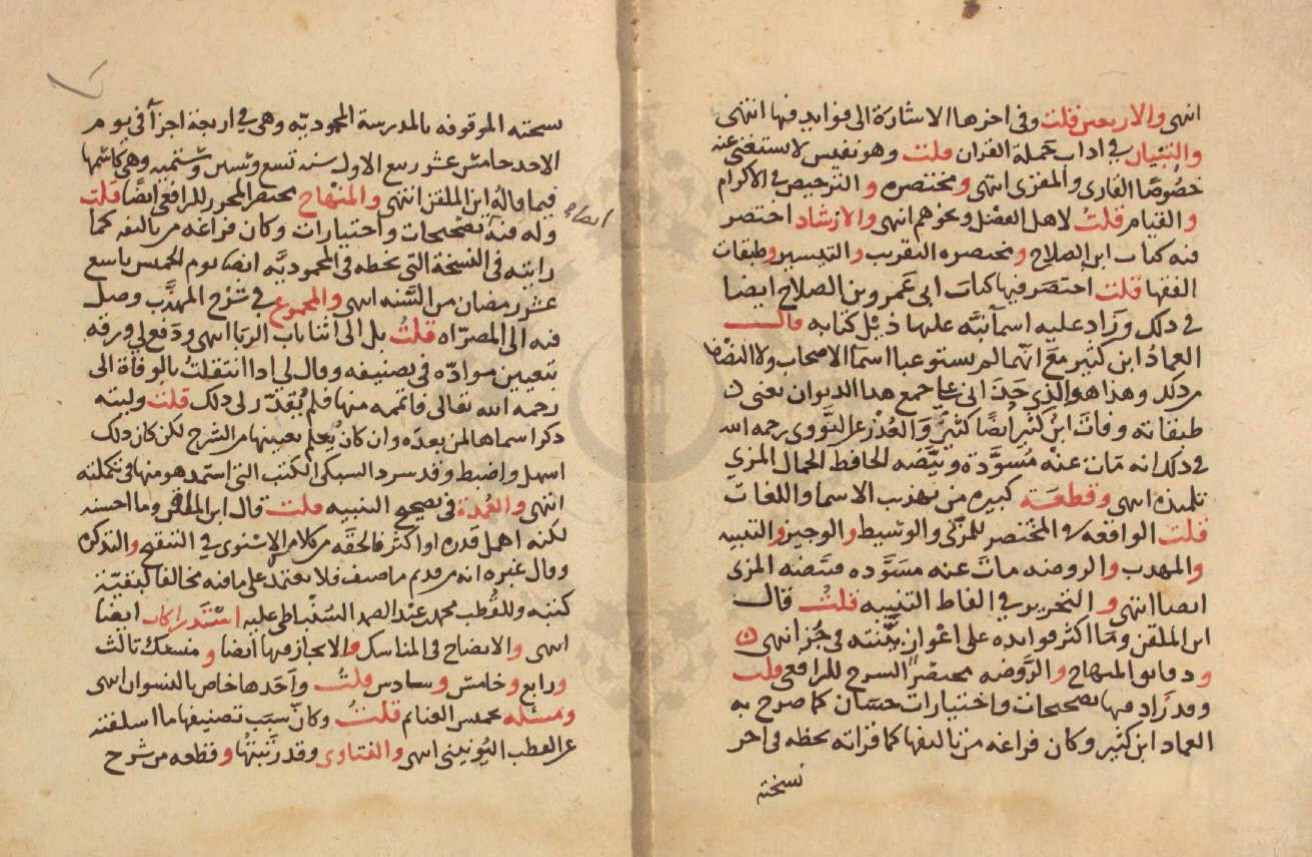 انتهى والاربعين قلت وفى اخرها الاشارة الى فوايد فيها انتهى
والتبيان في اداب حملة القران قلت وهو نفيس لا يستغنى عنه
خصوصا القارى والمقرى انتهى ومختصره والترخيص في الاكرام
والقيام قلت لاهل الفضل ونحوهم انتهى والارشاد اختصر
فيه كتاب ابن الصلاح ومختصره التقريب والتيسير وطبقات
الفقها قلت اختصر فيها كتاب ابى عمرو بن الصلاح ايضا
في ذلك وزاد عليه اسما نبه عليها في ذيل كتابه قال
العماد ابن كثير مع انهما لم يستوعبا اسما الاصحاب ولا النصف
من ذلك وهذا هو الذي حدانى على جمع هذا الديوان يعنى
طبقاته وفات ابن كثير ايضا كثير والعذر عن النووى رحمه الله
في ذلك انه مات عنه مسودة وبيضه الحافظ الجمال المزي
تلميذه انتهى وقطعة كبيره من تهذيب الاسما واللغات
قلت الواقعه في المختصر للمزنى والوسيط والوجيز والتنبيه
والمهذب والروضه مات عنه مسوده فبيضه المزى
ايضا انتهى والتحرير في الفاظ التنبيه قلت قال
ابن الملقن وما اكثر فوايده على اعواز بينته في جزء انتهى
ودقايق المنهاج والروضه مختصر الشرح للرافعى قلت
وقد زاد فيها تصحيحات واختيارات حسان كما صرح به
العماد ابن كثير وكان فراغه من تاليفها كما قراته بخطه فى اخر
نسخته
نسخته الموقوفه بالمدرسة المحموديه وهى في اربعة اجزآ فى يوم
الاحد خامس عشر ربيع الاول سنه تسع وستين وستميه وهى كاسمها
فيما قاله ابن الملقن انتهى والمنهاج مختصر المحرر للرافعى ايضا قلت
وله فيه تصحيحات واختيارات وكان فراغه من تاليفه كما
رايته فى النسخة التى بخطه فى المحموديه ايضا يوم الخميس تاسع
عشر رمضان من السنه انتهى والمجموع في شرح المهذب وصل
فيه الى المصراه قلت بل الى اثنا باب الربا انتهى ودفع لي ورقه
بتعيين مواده فى تصنيفه وقال لى اذا انتقلت بالوفاة الى
رحمه الله تعالى فاتممه منها فلم يقدر لى ذلك قلت وليته
ذكر اسماها لمن بعده وان كان يعلم تعيينها من الشرح لكن كان ذلك
اسهل واضبط وقد سرد السبكى الكتب التى استمد هو منها فى تكملته
انتهى والعمدة فى تصحيح التنبيه قلت قال ابن الملقن وما احسنه
لكنه اهمل قدره او اكثر فالحقه من كلام الاسنوى في التنقيح والتذكره
وقال غيره انه من قديم ما صنف فلا يعتمد على ما فيه مخالفا لبقية
كتبه وللقطب محمد عبد الصمد السنباطى عليه استدراكات ايضا
انتهى والايضاح فى المناسك والايجاز فيها ايضا ومنسك ثالث
ورابع وخامس وسادس قلت واحدها خاص بالنسوان انتهى
ومسئله تخميس الغنايم قلت وكان سبب تصنيفها ما اسلفته
عن القطب اليونينى انتهى والفتاوى وقد رتبتها وقطعه من شرح
ايضا